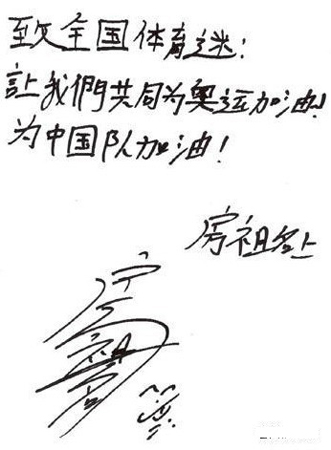 致全国体育迷:
讓我們共同为奥运加油!
为中国队加油!
房祖名上
房祖名